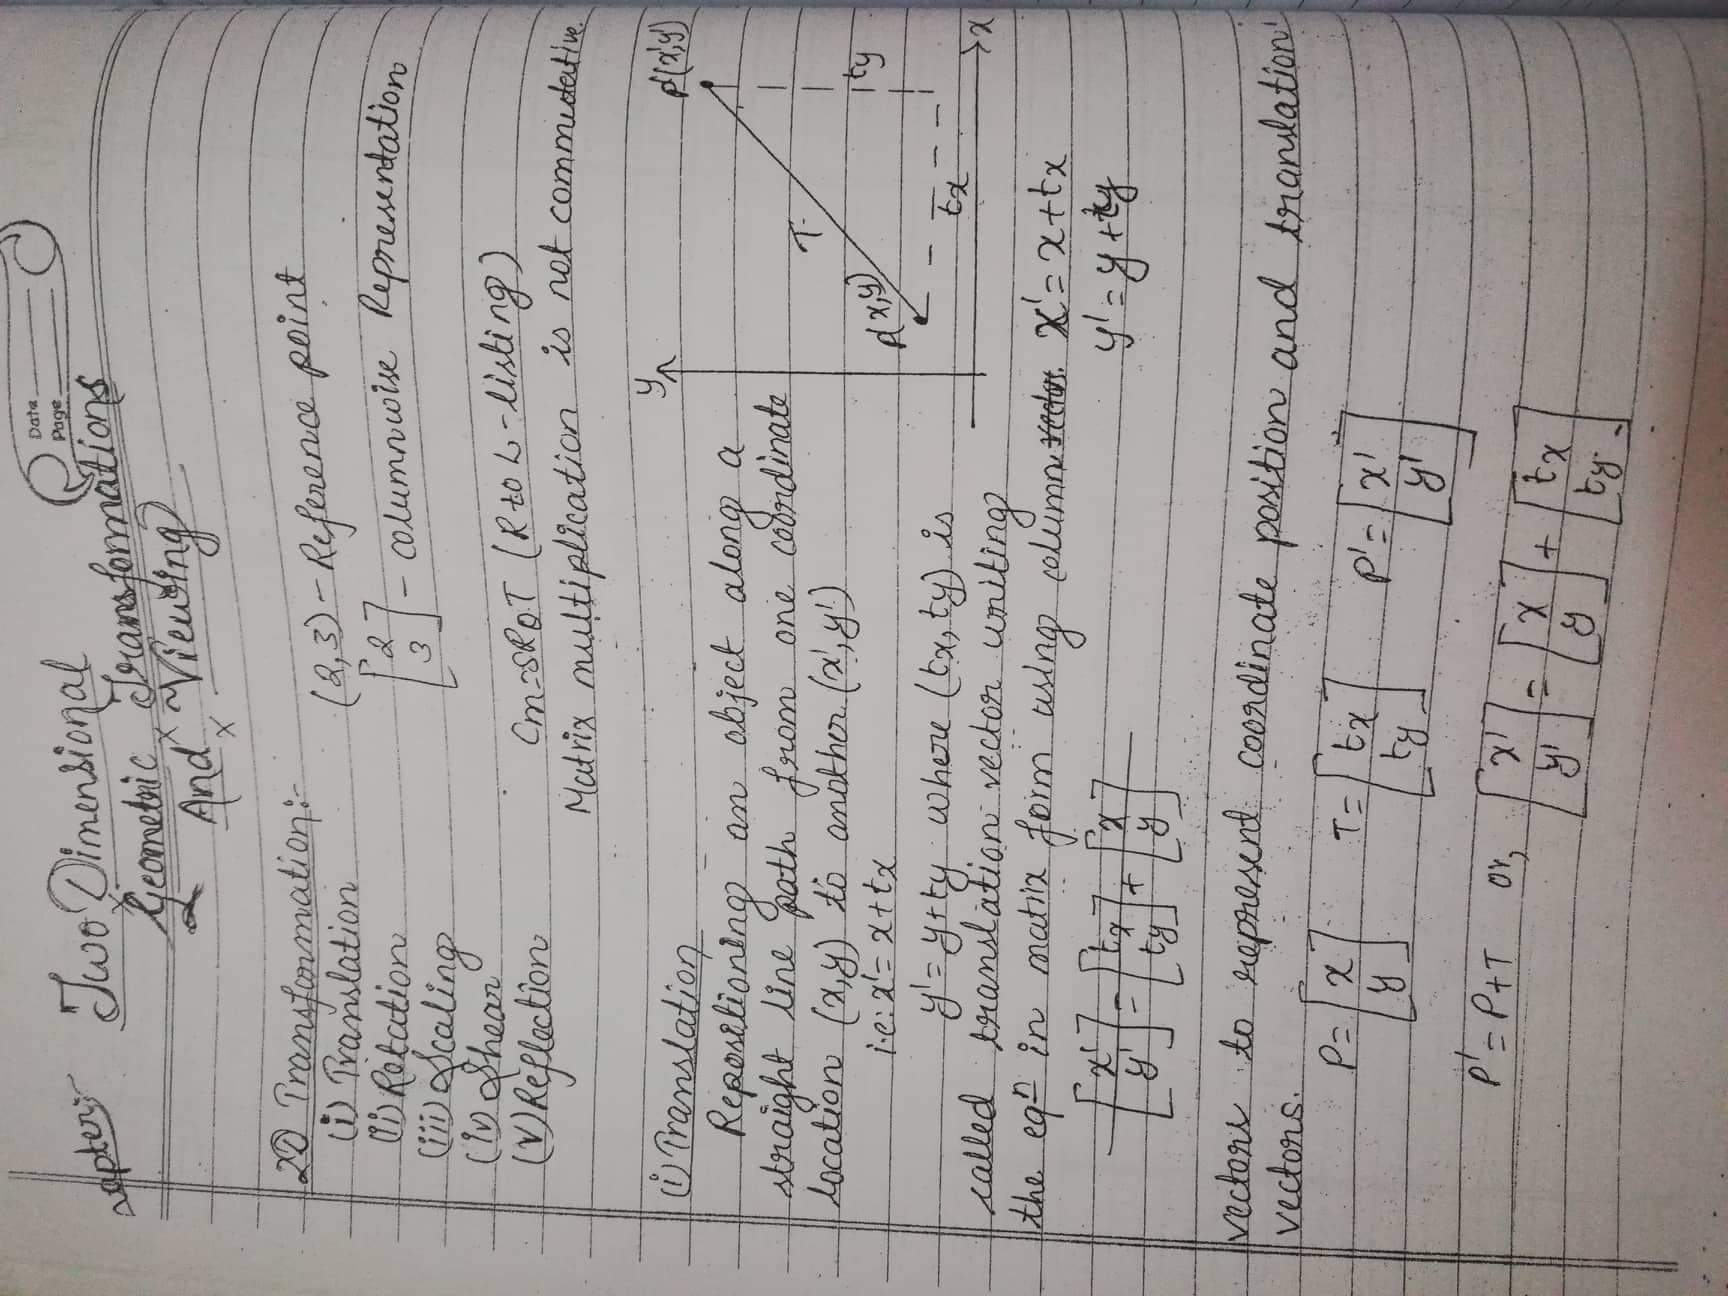 Date
Page
apter:-
Two Dimensional
Geometric Transformations
And Viewing
2D Transformation:-
(i) Translation
(ii) Rotation
(iii) Scaling
(iv) Shear
(v) Reflection
(2,3) - Reference point
[2
3] - columnwise Representation
Cm=SRθT (R to L - listing)
Matrix multiplication is not commutative.
(i) Translation
Repositioning an object along a
straight line path from one coordinate
location (x,y) to another (x',y')
i.e: x'= x+tx
y'= y+ty where (tx, ty) is
called translation vector writing
the eqn in matrix form using column vector.
y
P'(x',y')
T
P(x,y)
ty
tx
x
x'= x+tx
y'= y+ty
[x'
y'] = [tx
ty] + [x
y]
vectors to represent coordinate position and translation
vectors.
P= [x
y] T= [tx
ty] P'= [x'
y']
P'= P+T or, [x'
y'] = [x
y] + [tx
ty]